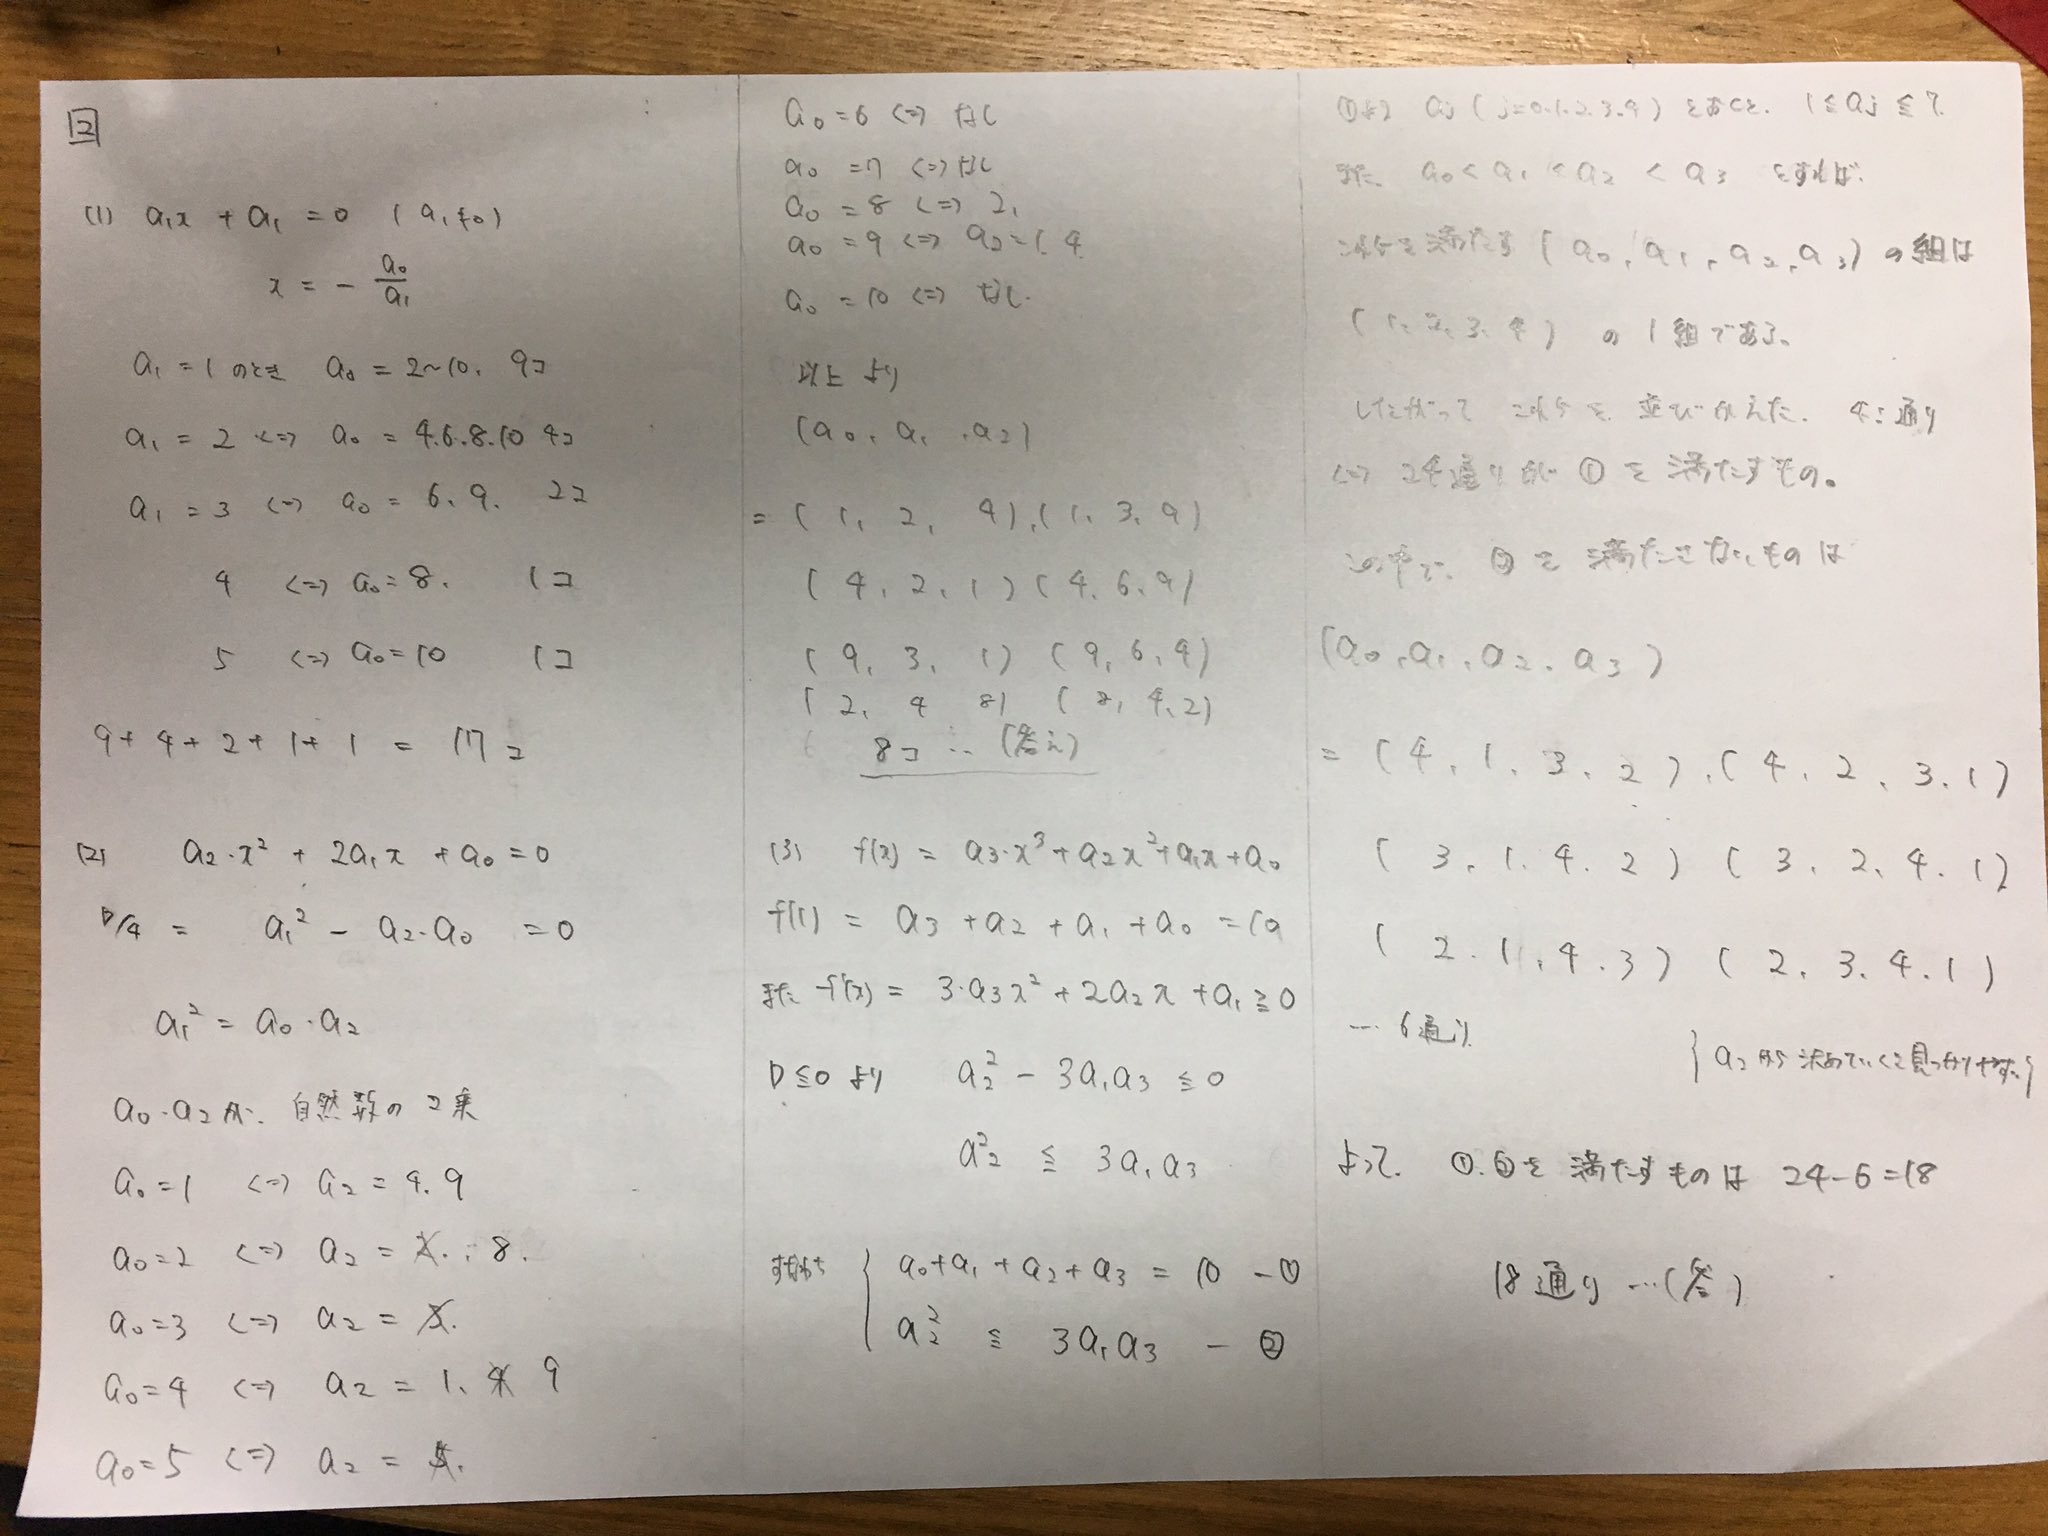 2
(1) a₁x + a₁ = 0 (a₁≠0)
x = - a₀/a₁
a₁ = 1 のとき a₀ = 2~10. 9コ
a₁ = 2 <=> a₀ = 4.6.8.10 4コ
a₁ = 3 <=> a₀ = 6. 9. 2コ
4 <=> a₀ = 8. 1コ
5 <=> a₀ = 10 1コ
9 + 4 + 2 + 1 + 1 = 17コ
(2) a₂・x² + 2a₁x + a₀ = 0
D/4 = a₁² - a₂・a₀ = 0
a₁² = a₀・a₂
a₀・a₂が、自然数の2乗
a₀=1 <=> a₂ = 4. 9
a₀=2 <=> a₂ = 2. 8.
a₀=3 <=> a₂ = 3.
a₀=4 <=> a₂ = 1. 4 9
a₀=5 <=> a₂ = 5.
a₀=6 <=> なし
a₀=7 <=> なし
a₀=8 <=> 2,
a₀=9 <=> a₂=1. 4.
a₀=10 <=> なし.
以上より
(a₀, a₁, a₂)
= (1, 2, 4), (1. 3. 9)
(4, 2, 1) (4. 6. 9)
(9, 3, 1) (9, 6, 4)
(2, 4 8) (8, 4, 2)
8コ … (答え)
(3) f(x) = a₃・x³ + a₂x² + a₁x + a₀
f(1) = a₃ + a₂ + a₁ + a₀ = 10
また f'(x) = 3・a₃x² + 2a₂x + a₁ ≧ 0
D≦0 より a₂² - 3a₁a₃ ≦ 0
a₂² ≦ 3a₁a₃
すなわち { a₀+a₁+a₂+a₃ = 10 - ①
a₂² ≦ 3a₁a₃ - ②
①より aj (j=0.1.2.3.4) とおくと、1≦aj≦7.
また a₀<a₁<a₂<a₃ とすれば.
これらを満たす (a₀, a₁, a₂, a₃) の組は
(1. 2. 3. 4) の1組である。
したがって これらを 並びかえた. 4! 通り
<=> 24通りが ①を 満たすもの。
この中で、②を 満たさないものは
(a₀, a₁, a₂, a₃)
= (4, 1, 3, 2), (4, 2, 3. 1)
(3, 1. 4. 2) (3, 2, 4. 1)
(2. 1. 4. 3) (2, 3. 4. 1)
… 6通り
{a₂から決めていくと見つかりやすい}
よって、①.②を満たすものは 24-6=18
18通り …(答)